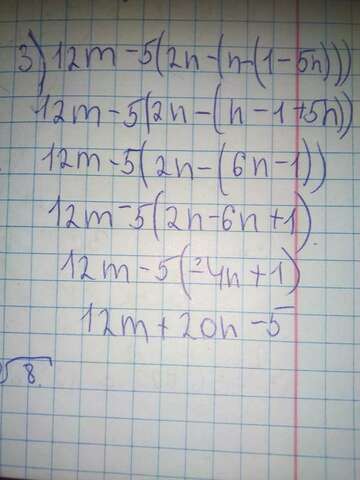 3) 12m-5(2n-(n-(1-5n)))
12m-5(2n-(n-1+5n))
12m-5(2n-(6n-1))
12m-5(2n-6n+1)
12m-5(-4n+1)
12m+20n-5
8.